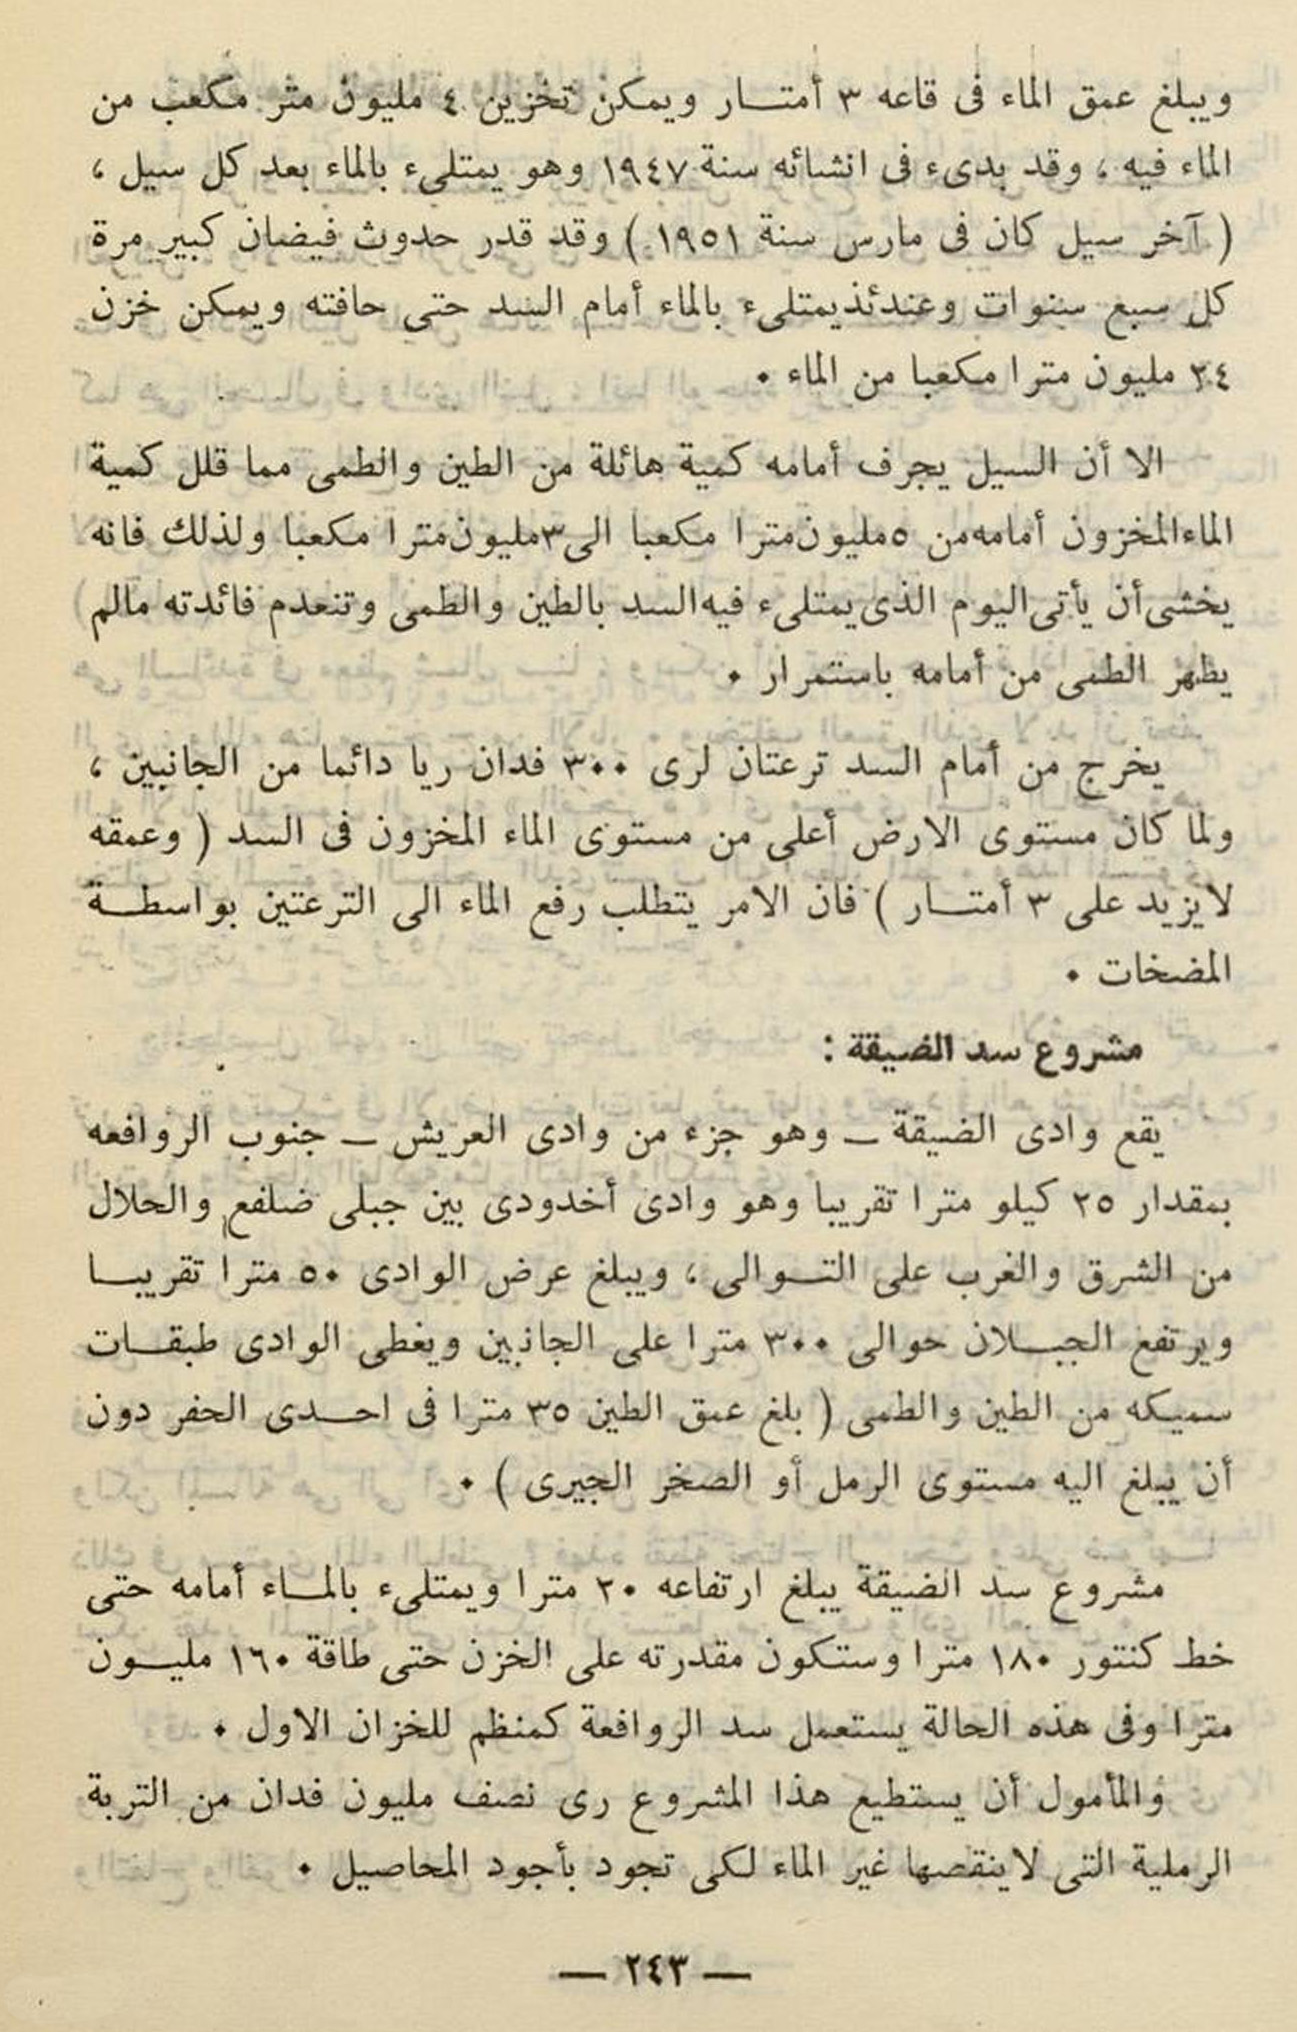 ويبلغ عمق الماء فى قاعه ٣ أمتــار ويمكن تخزين ٤ مليون متر مكعب من
الماء فيه ، وقد بدىء فى انشائه سنة ١٩٤٧ وهو يمتلىء بالماء بعد كل سيل ،
( آخر سيل كان فى مارس سنة ١٩٥١ ) وقد قدر حدوث فيضان كبير مرة
كل سبع سنوات وعندئذ يمتلىء بالماء أمام السد حتى حافته ويمكن خزن
٢٤ مليون مترا مكعبا من الماء ٠
الا أن السيل يجرف أمامه كمية هائلة من الطين والطمى مما قلل كمية
الماء المخزون أمامه من ٥ مليون مترا مكعبا الى ٣ مليون مترا مكعبا ولذلك فانه
يخشى أن يأتى اليوم الذى يمتلىء فيه السد بالطين والطمى وتنعدم فائدته مالم
يطهر الطمى من أمامه باستمرار ٠
يخرج من أمام السد ترعتان لرى ٣٠٠ فدان ريا دائما من الجانبين ،
ولما كان مستوى الارض أعلى من مستوى الماء المخزون فى السد ( وعمقه
لايزيد على ٣ أمتــار ) فان الامر يتطلب رفع الماء الى الترعتين بواسطــة
المضخات ٠
مشروع سد الضيقة :
يقع وادى الضيقة ـ وهو جزء من وادى العريش ـ جنوب الروافعه
بمقدار ٢٥ كيلو مترا تقريبا وهو وادى أخدودى بين جبلى ضلفع والحلال
من الشرق والغرب على التــوالى ، ويبلغ عرض الوادى ٥٠ مترا تقريبــا
ويرتفع الجبــلان حوالى ٣٠٠ مترا على الجانبين ويغطى الوادى طبقــات
سميكه من الطين والطمى ( بلغ عمق الطين ٣٥ مترا فى احــدى الحفر دون
أن يبلغ اليه مستوى الرمل أو الصخر الجيرى ) ٠
مشروع سد الضيقة يبلغ ارتفاعه ٢٠ مترا ويمتلىء بالمــاء أمامه حتى
خط كنتور ١٨٠ مترا وستكون مقدرته على الخزن حتى طاقة ١٦٠ مليــون
مترا وفى هذه الحالة يستعمل سد الروافعة كمنظم للخزان الاول ٠
والمأمول أن يستطيع هذا المشروع رى نصف مليون فدان من التربة
الرملية التى لاينقصها غير الماء لكى تجود بأجود المحاصيل ٠
— ٢٤٣ —